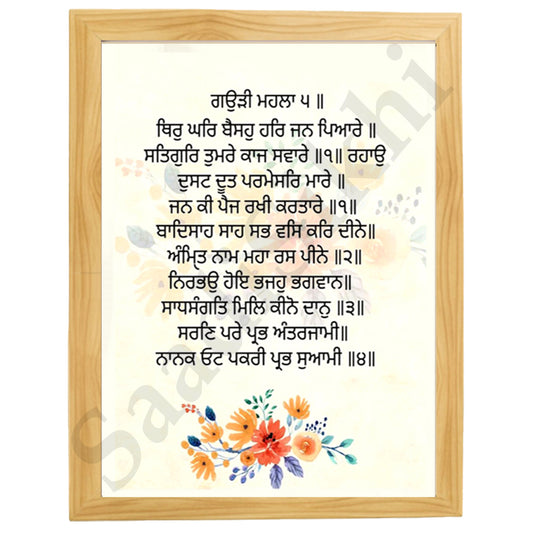 ਗਉੜੀ ਮਹਲਾ ੫ ॥
ਥਿਰੁ ਘਰਿ ਬੈਸਹੁ ਹਰਿ ਜਨ ਪਿਆਰੇ ॥
ਸਤਿਗੁਰਿ ਤੁਮਰੇ ਕਾਜ ਸਵਾਰੇ ॥੧॥ ਰਹਾਉ
ਦੁਸਟ ਦੂਤ ਪਰਮੇਸਰਿ ਮਾਰੇ ॥
ਜਨ ਕੀ ਪੈਜ ਰਖੀ ਕਰਤਾਰੇ ॥੧॥
ਬਾਦਿਸਾਹ ਸਾਹ ਸਭ ਵਸਿ ਕਰਿ ਦੀਨੇ॥
ਅੰਮ੍ਰਿਤ ਨਾਮ ਮਹਾ ਰਸ ਪੀਨੇ ॥੨॥
ਨਿਰਭਉ ਹੋਇ ਭਜਹੁ ਭਗਵਾਨ॥
ਸਾਧਸੰਗਤਿ ਮਿਲਿ ਕੀਨੋ ਦਾਨੁ ॥੩॥
ਸਰਣਿ ਪਰੇ ਪ੍ਰਭ ਅੰਤਰਜਾਮੀ॥
ਨਾਨਕ ਓਟ ਪਕਰੀ ਪ੍ਰਭ ਸੁਆਮੀ ॥੪॥